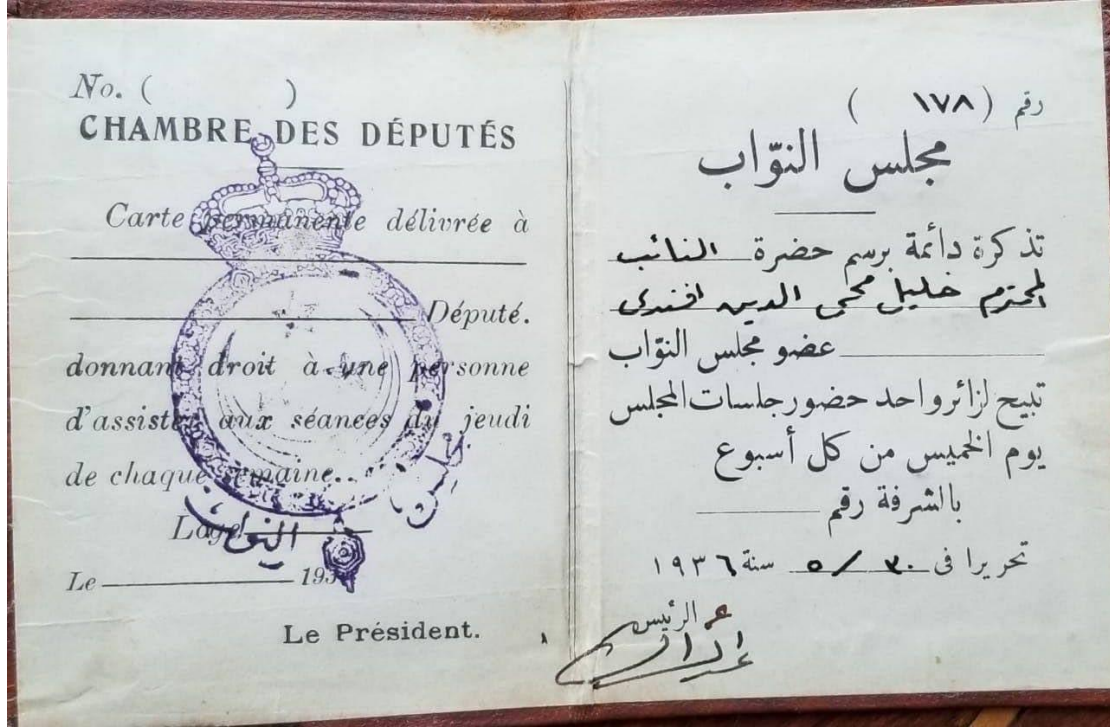 No. ( )
CHAMBRE DES DÉPUTÉS
Carte permanente délivrée à
Député.
donnant droit à une personne
d'assister aux séances du jeudi
de chaque semaine..
Loge
Le 193
Le Président.
مجلس
النواب
رقم ( ١٧٨ )
مجلس النوّاب
تذكرة دائمة برسم حضرة النائب
المحترم خليل محي الدين افندى
عضو مجلس النوّاب
تبيح لزائر واحد حضور جلسات المجلس
يوم الخميس من كل أسبوع
بالشرفة رقم
تحريرا فى ٣٠ / ٥ سنة ١٩٣٦
الرئيس